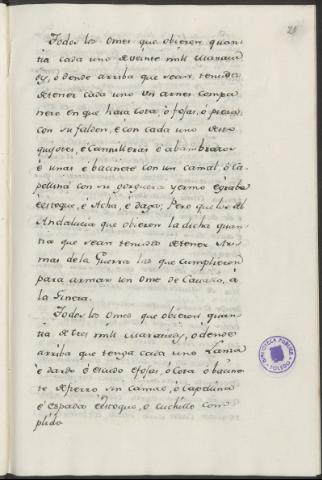 28
Todos los omes que obieren quan-
tia cada uno de veinte mill marave-
dis, o dende arriba que sean tenudos
de tener cada uno un arnes compa-
ñero en que haia cota, ó fojas, ó pieza
con su faldon, é con cada uno
quijotes, é canilleras ó abambrazos
é unas é bacinete con un camal, ó ca-
pellina con su gorguera yelmo é glabe
estoque, é Acha, é daga; Pero que los del
Andalucia que obieren la dicha quan-
tia que sean tenudos de tener Ar-
mas de la Guerra las que cumplieren
para armar un ome de Cavallo, á
la Gineta.
Todos los Omes que obieren quan-
tia de tres mill maravedis, o dende
arriba que tenga cada uno Lanza
é dardo é escudo é fojas, ó cota ó bacine-
te de fierro sin camal, ó capellina
é espada estoque, o cuchillo com-
plido
BIBLIOTECA PUBLICA
TOLEDO